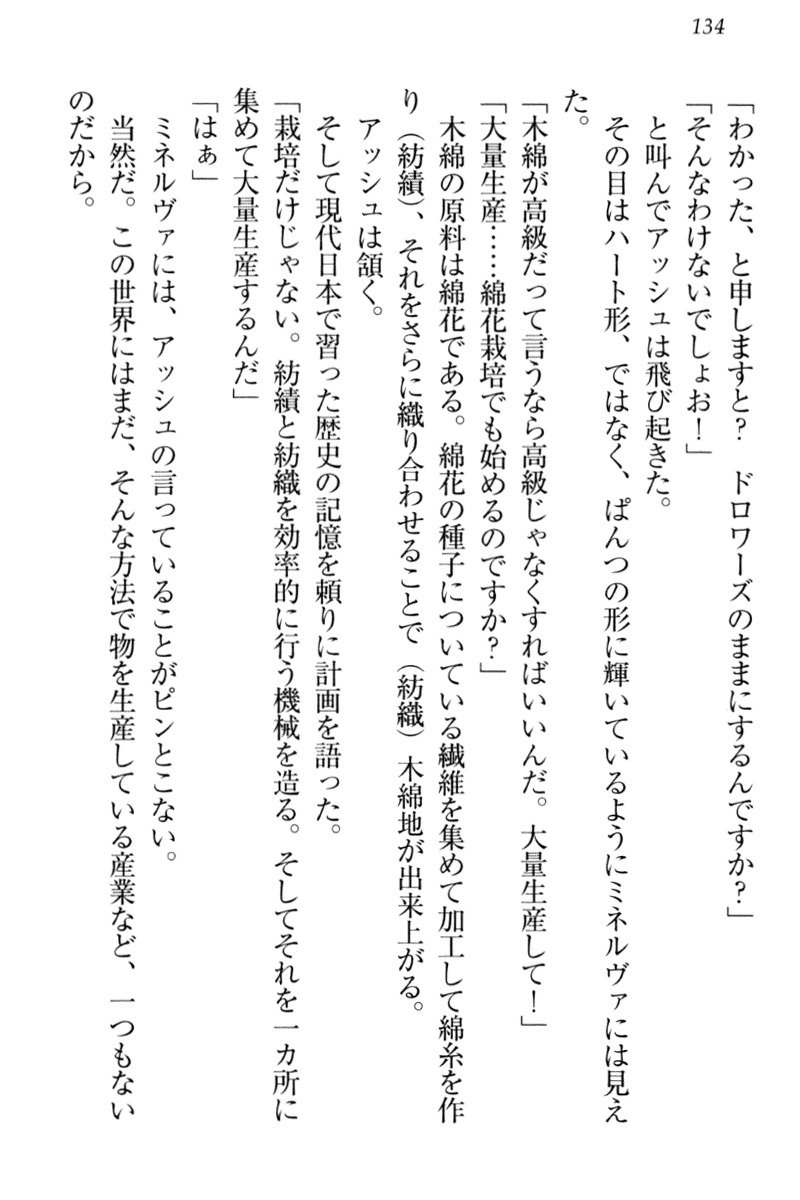 134
「わかった、と申しますと？　ドロワーズのままにするんですか？」
「そんなわけないでしょお！」
　と叫んでアッシュは飛び起きた。
　その目はハート形、ではなく、ぱんつの形に輝いているようにミネルヴァには見え
た。
「木綿が高級だって言うなら高級じゃなくすればいいんだ。大量生産して！」
「大量生産……綿花栽培でも始めるのですか？」
　木綿の原料は綿花である。綿花の種子についている繊維を集めて加工して綿糸を作
り（紡績）、それをさらに織り合わせることで（紡織）木綿地が出来上がる。
　アッシュは頷く。
　そして現代日本で習った歴史の記憶を頼りに計画を語った。
「栽培だけじゃない。紡績と紡織を効率的に行う機械を造る。そしてそれを一カ所に
集めて大量生産するんだ」
「はぁ」
　ミネルヴァには、アッシュの言っていることがピンとこない。
　当然だ。この世界にはまだ、そんな方法で物を生産している産業など、一つもない
のだから。